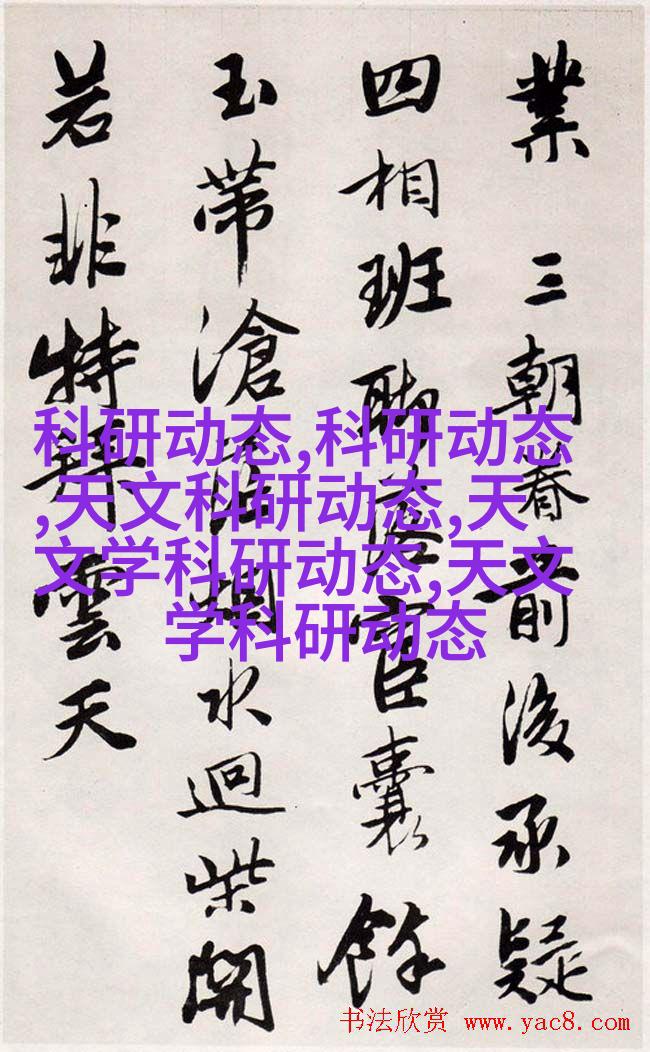 業 三朝眷前後承疑
四相班聯宦囊餘
玉帶滄水迴柴開
若非特雲天
科研动态,科研动态
,天文科研动态,天
文学科研动态,天文
学科研动态
书法欣赏 www.yac8.com